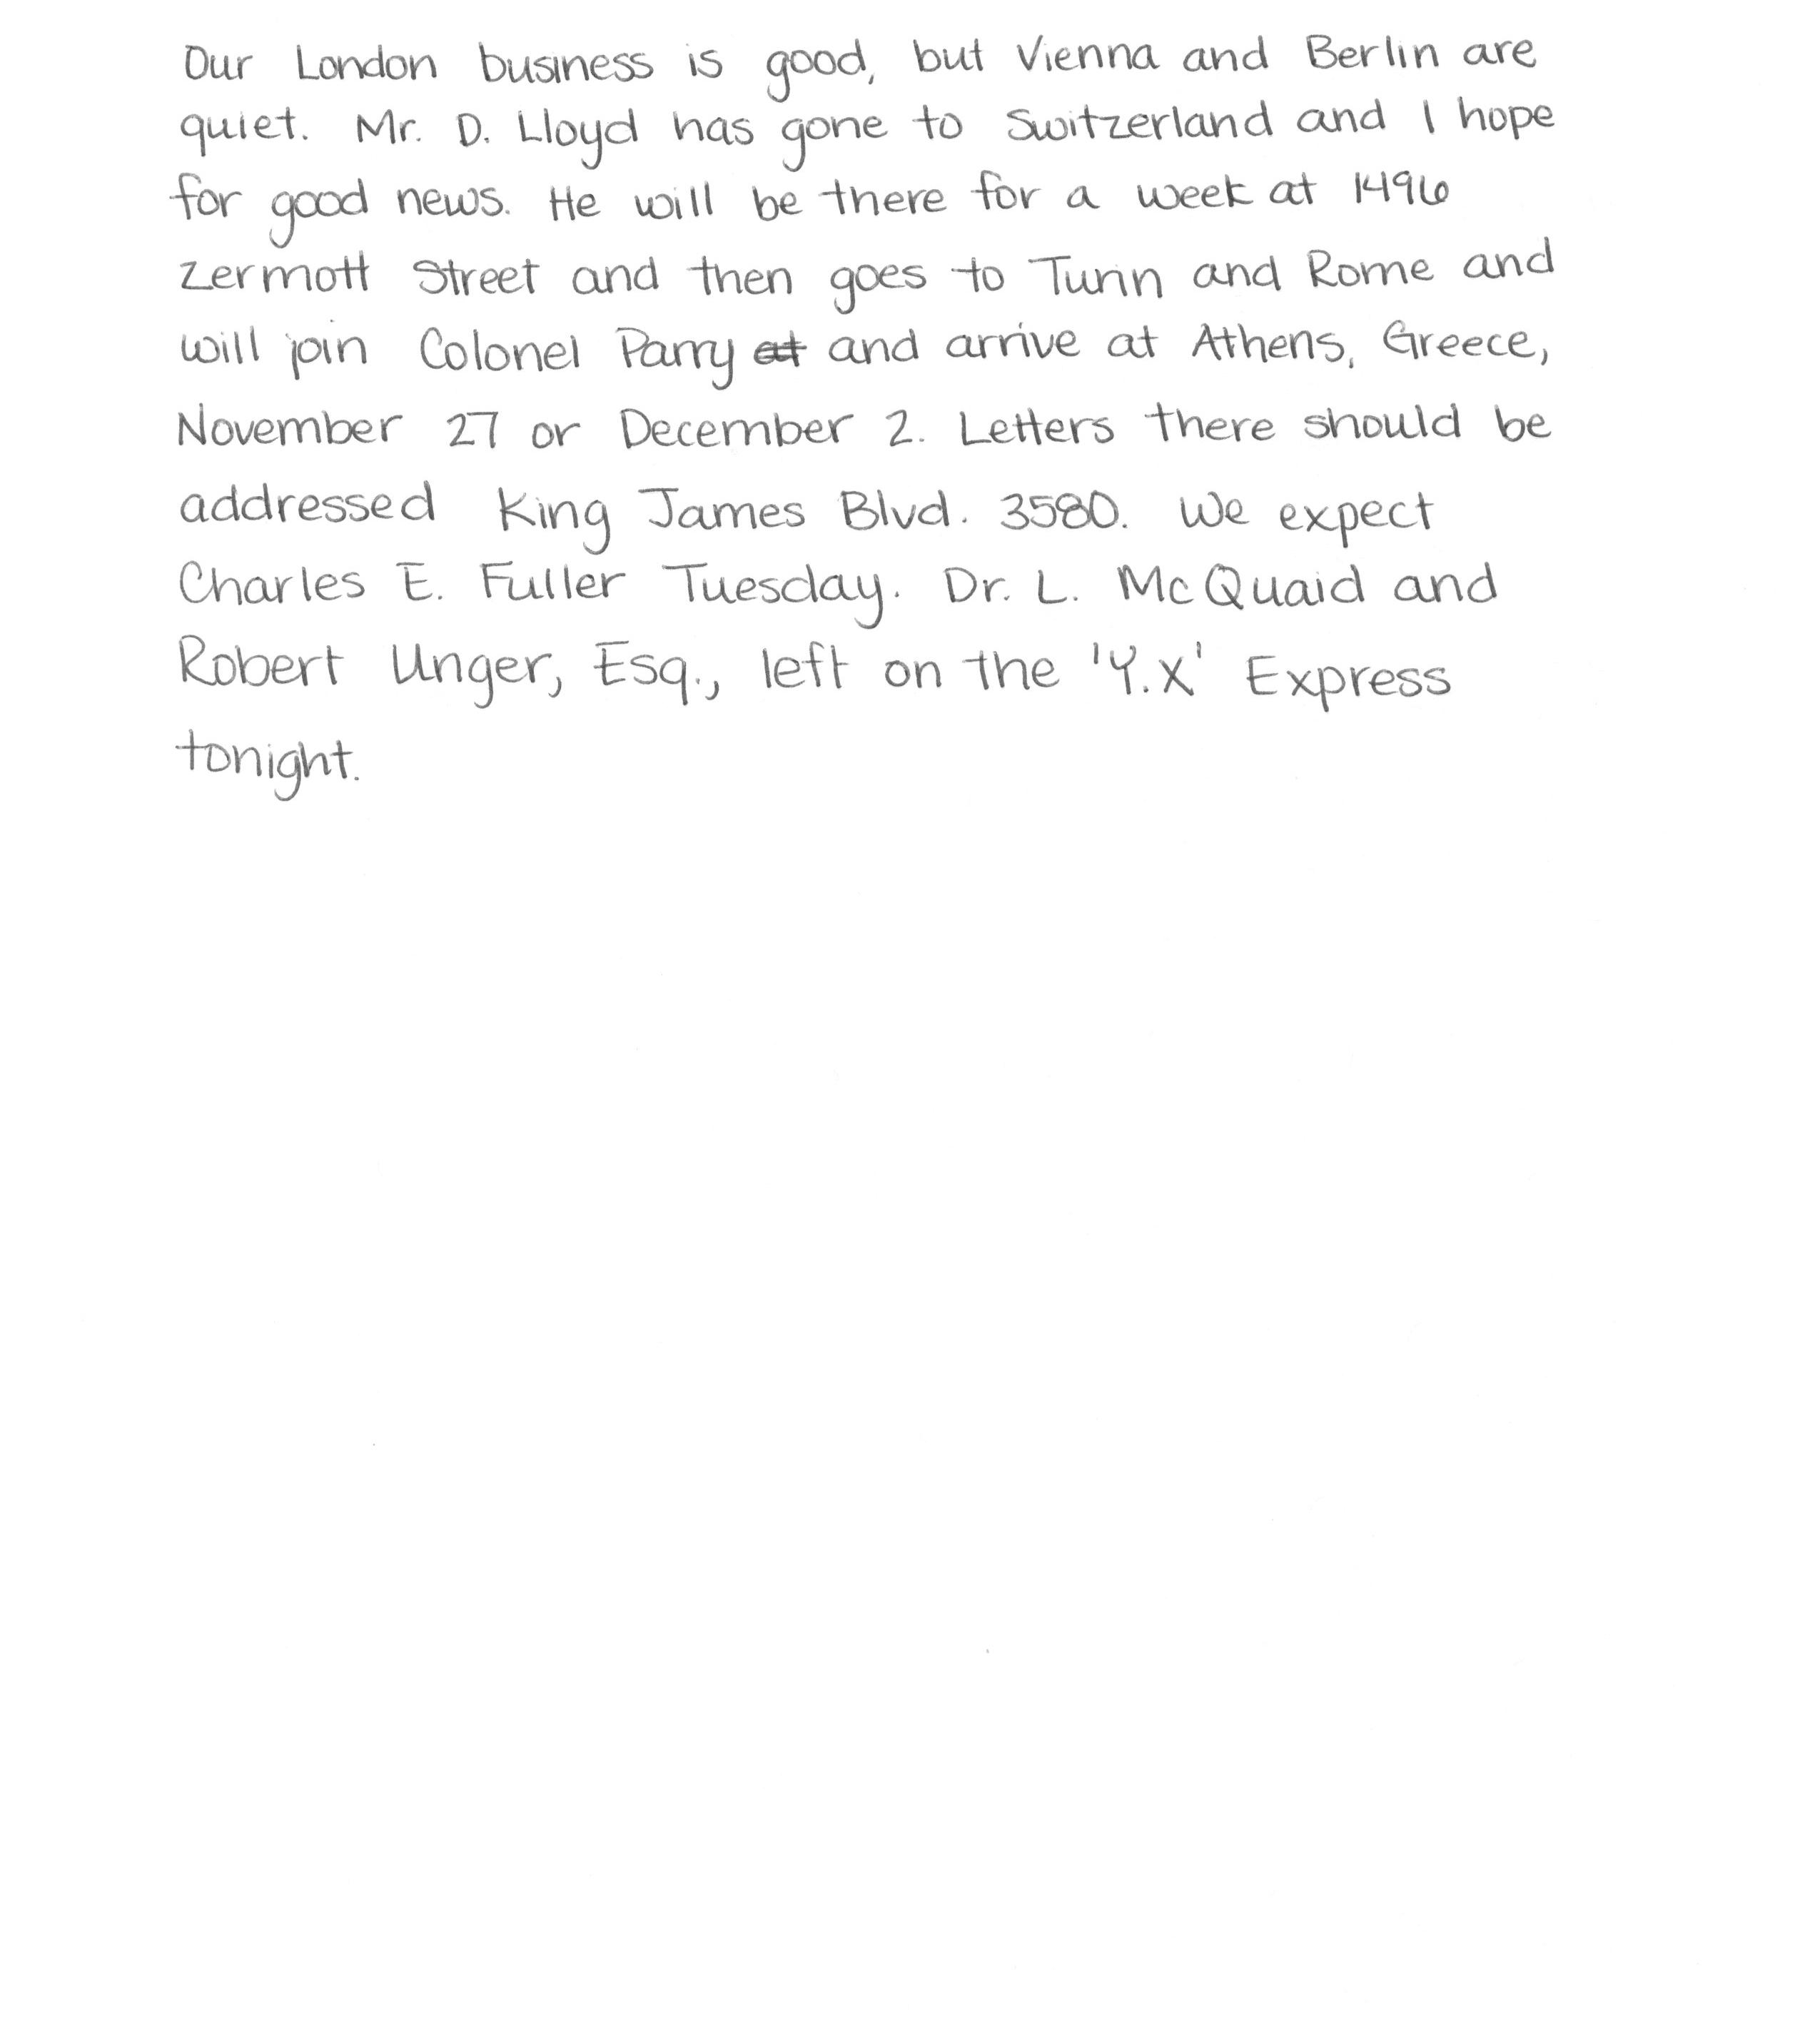 Our London business is good, but Vienna and Berlin are
quiet. Mr. D. Lloyd has gone to Switzerland and I hope
for good news. He will be there for a week at 1496
Zermott Street and then goes to Turin and Rome and
will join Colonel Parry at and arrive at Athens, Greece,
November 27 or December 2. Letters there should be
addressed King James Blvd. 3580. We expect
Charles E. Fuller Tuesday. Dr. L. McQuaid and
Robert Unger, Esq., left on the 'Y.X' Express
tonight.